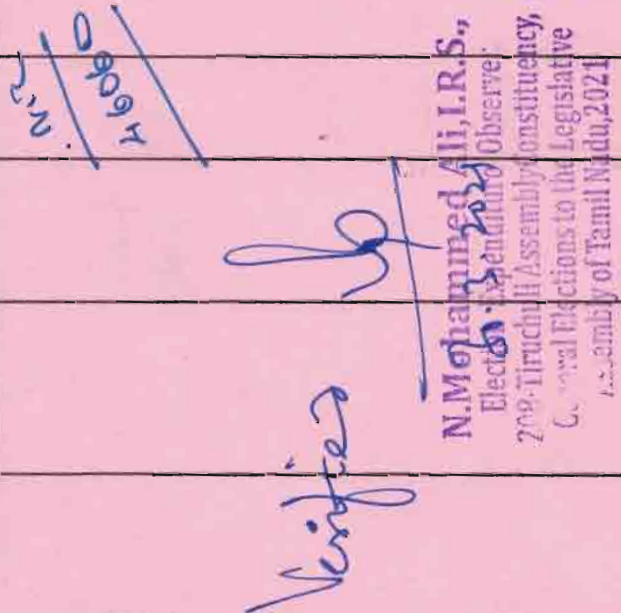 Nil
46060
Verified
N.Mohammed Ali, I.R.S.,
Election Expenditure Observer,
208-Tiruchuli Assembly Constituency,
General Elections to the Legislative
Assembly of Tamil Nadu,2021